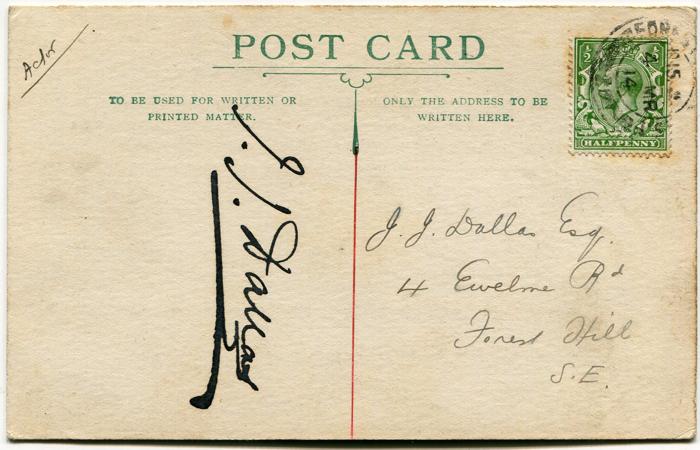 Actor
POST CARD
TO BE USED FOR WRITTEN OR
PRINTED MATTER.
ONLY THE ADDRESS TO BE
WRITTEN HERE.
½ ½
HALFPENNY
J. J. Dallas
J. J. Dallas Esq.
4 Ewelme Rd
Forest Hill
S.E.